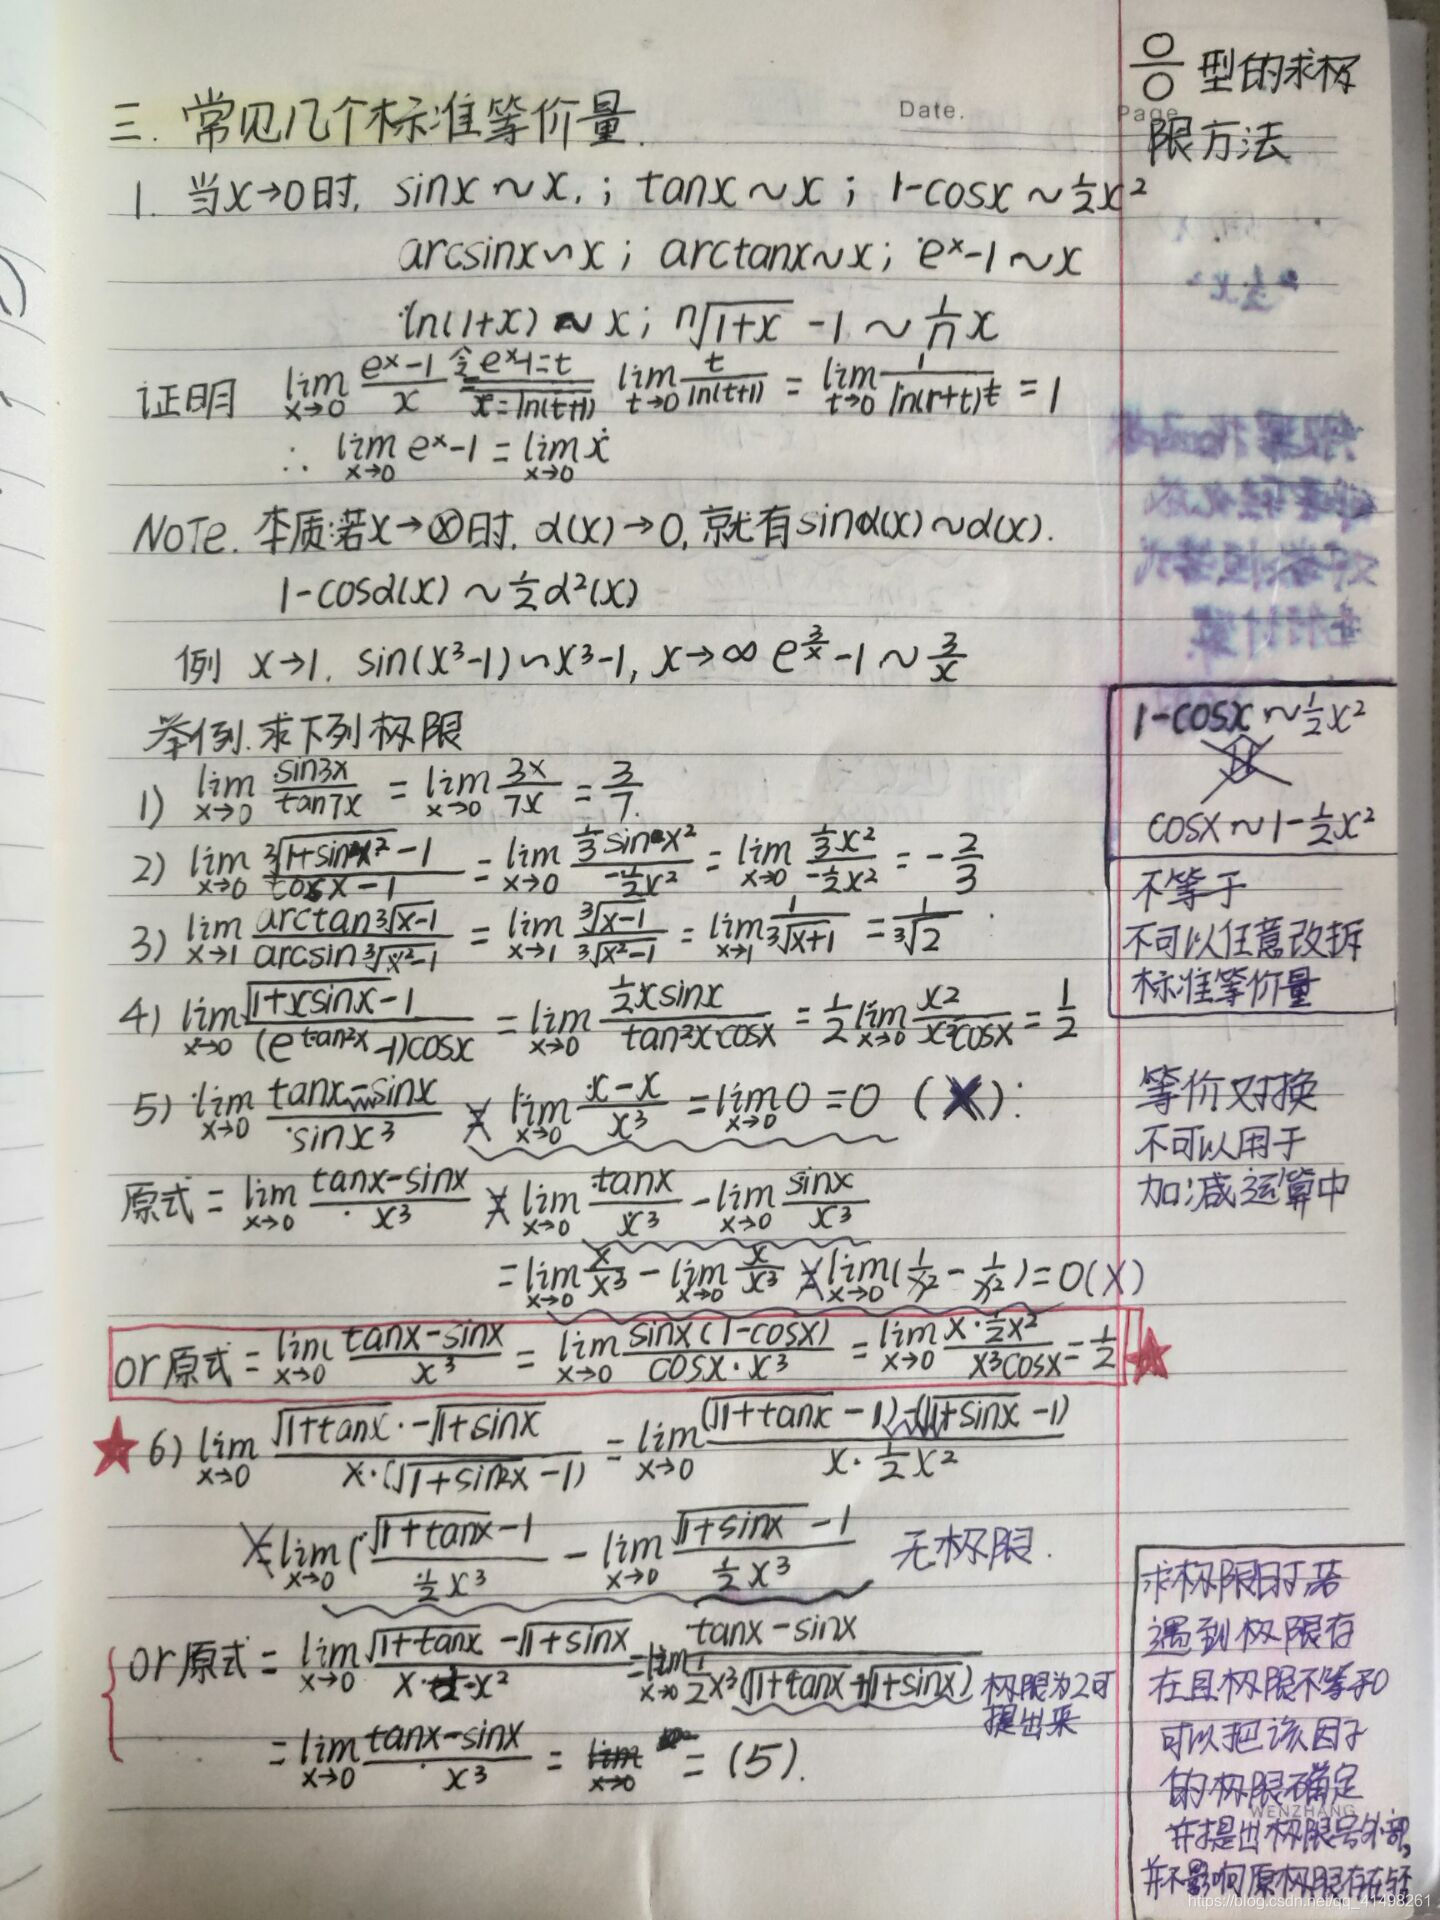 Date.
Page
0/0 型的求极
限方法
三. 常见几个标准等价量.
1. 当x→0时, sinx ~ x, ; tanx ~ x ; 1-cosx ~ 1/2 x²
arcsinx ~ x ; arctanx ~ x ; eˣ-1 ~ x
ln(1+x) ~ x ; ⁿ√(1+x) -1 ~ 1/n x
证明 lim x→0 (eˣ-1)/x 令eˣ-1=t = x=ln(t+1) lim t→0 t/ln(t+1) = lim t→0 1/ln(1+t)^(1/t) = 1
∴ lim x→0 eˣ-1 = lim x→0 x
NoTe. 本质:若x→ⓧ时, α(x)→0, 就有sinα(x)~α(x).
1-cosα(x) ~ 1/2 α²(x)
例 x→1, sin(x³-1) ~ x³-1, x→∞ e^(3/x) -1 ~ 3/x
举例.求下列极限
1) lim x→0 sin3x/tan7x = lim x→0 3x/7x = 3/7.
2) lim x→0 (³√(1+sin x²) -1)/(cosx-1) = lim x→0 (1/3 sin x²)/(-1/2 x²) = lim x→0 (1/3 x²)/(-1/2 x²) = -2/3
3) lim x→1 (arctan ³√(x-1))/(arcsin ³√(x²-1)) = lim x→1 ³√(x-1)/³√(x²-1) = lim x→1 1/³√(x+1) = 1/³√2
4) lim x→0 (√(1+xsinx) -1)/((e^(tan²x) -1)cosx) = lim x→0 (1/2 xsinx)/(tan²x·cosx) = 1/2 lim x→0 x²/(x²cosx) = 1/2
5) lim x→0 (tanx-sinx)/sinx³ ≠ lim x→0 (x-x)/x³ = lim x→0 0 = 0 (X)
原式 = lim x→0 (tanx-sinx)/x³ ≠ lim x→0 tanx/x³ - lim x→0 sinx/x³
= lim x→0 x/x³ - lim x→0 x/x³ ≠ lim x→0 (1/x² - 1/x²) = 0 (X)
or 原式 = lim x→0 (tanx-sinx)/x³ = lim x→0 sinx(1-cosx)/(cosx·x³) = lim x→0 (x·1/2 x²)/(x³cosx) = 1/2
6) lim x→0 (√(1+tanx) - √(1+sinx))/(x·(√(1+sin²x) -1)) = lim x→0 ((√(1+tanx) -1)-(√(1+sinx) -1))/(x·1/2 x²)
≠ lim x→0 (√(1+tanx) -1)/(1/2 x³) - lim x→0 (√(1+sinx) -1)/(1/2 x³) 无极限.
or 原式 = lim x→0 (√(1+tanx) - √(1+sinx))/(x·1/2·x²) = lim x→0 (tanx-sinx)/(1/2 x³(√(1+tanx)+√(1+sinx))) 极限为2可
提出来
= lim x→0 (tanx-sinx)/x³ = = (5).
1-cosx ~ 1/2 x²
cosx ~ 1-1/2 x²
不等于
不可以任意改拆
标准等价量
等价对换
不可以用于
加减运算中
求极限时若
遇到极限存
在且极限不等于0
可以把该因子
的极限确定
并提出极限号外部,
并不影响原极限存在
WENZHANG
https://blog.csdn.net/qq_41498261